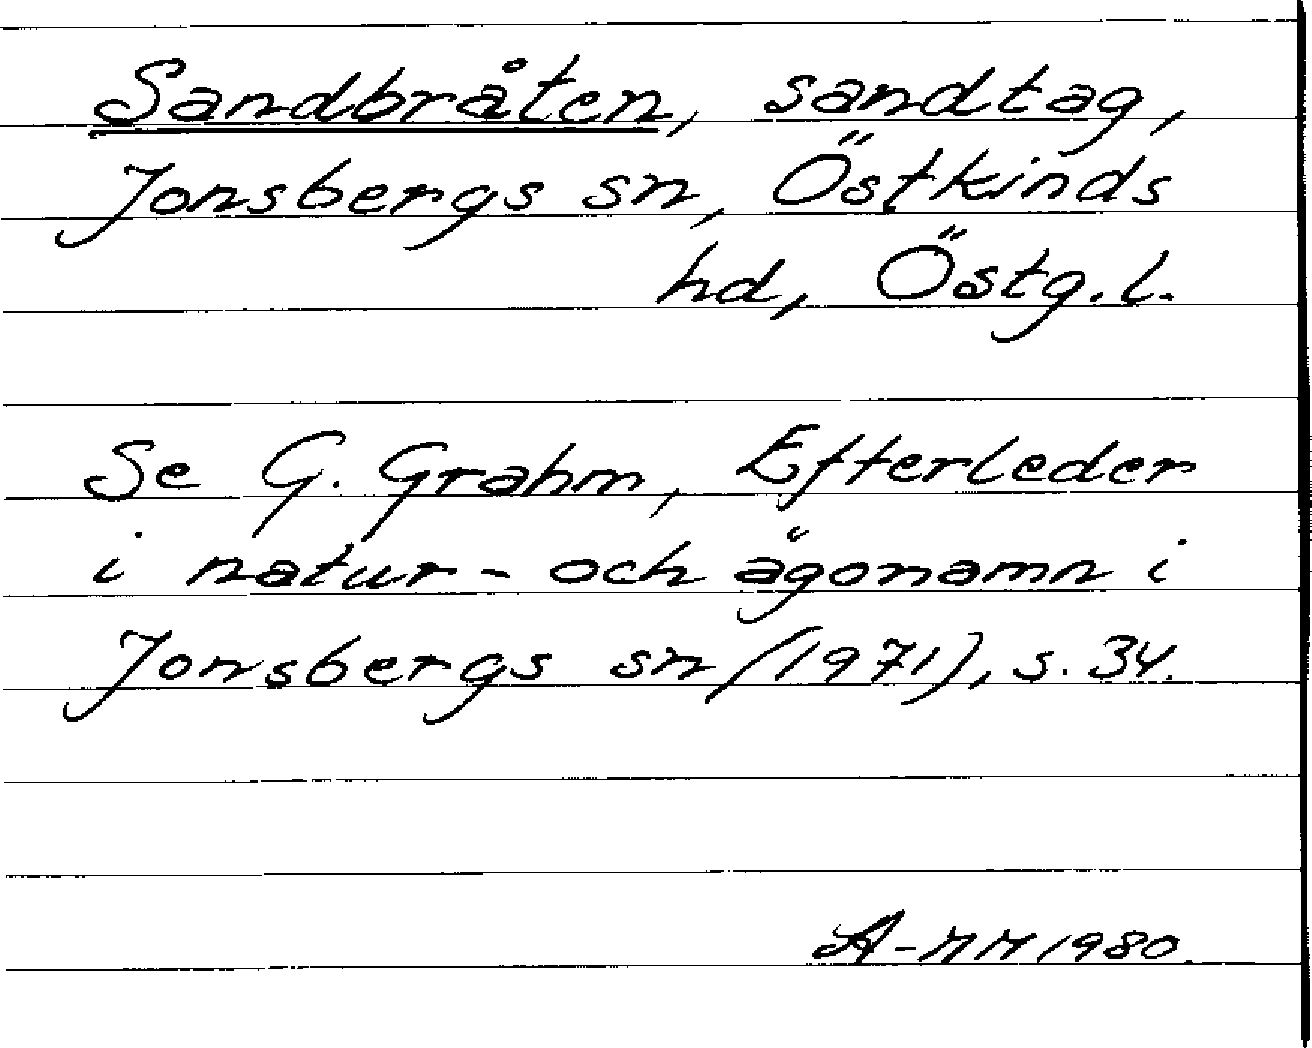 Sandbråten, sandtag,
Jonsbergs sn, Östkinds
hd, Östg.l.
Se G. Grahm, Efterleder
i natur- och ägonamn i
Jonsbergs sn (1971), s. 34.
A-MM 1980.